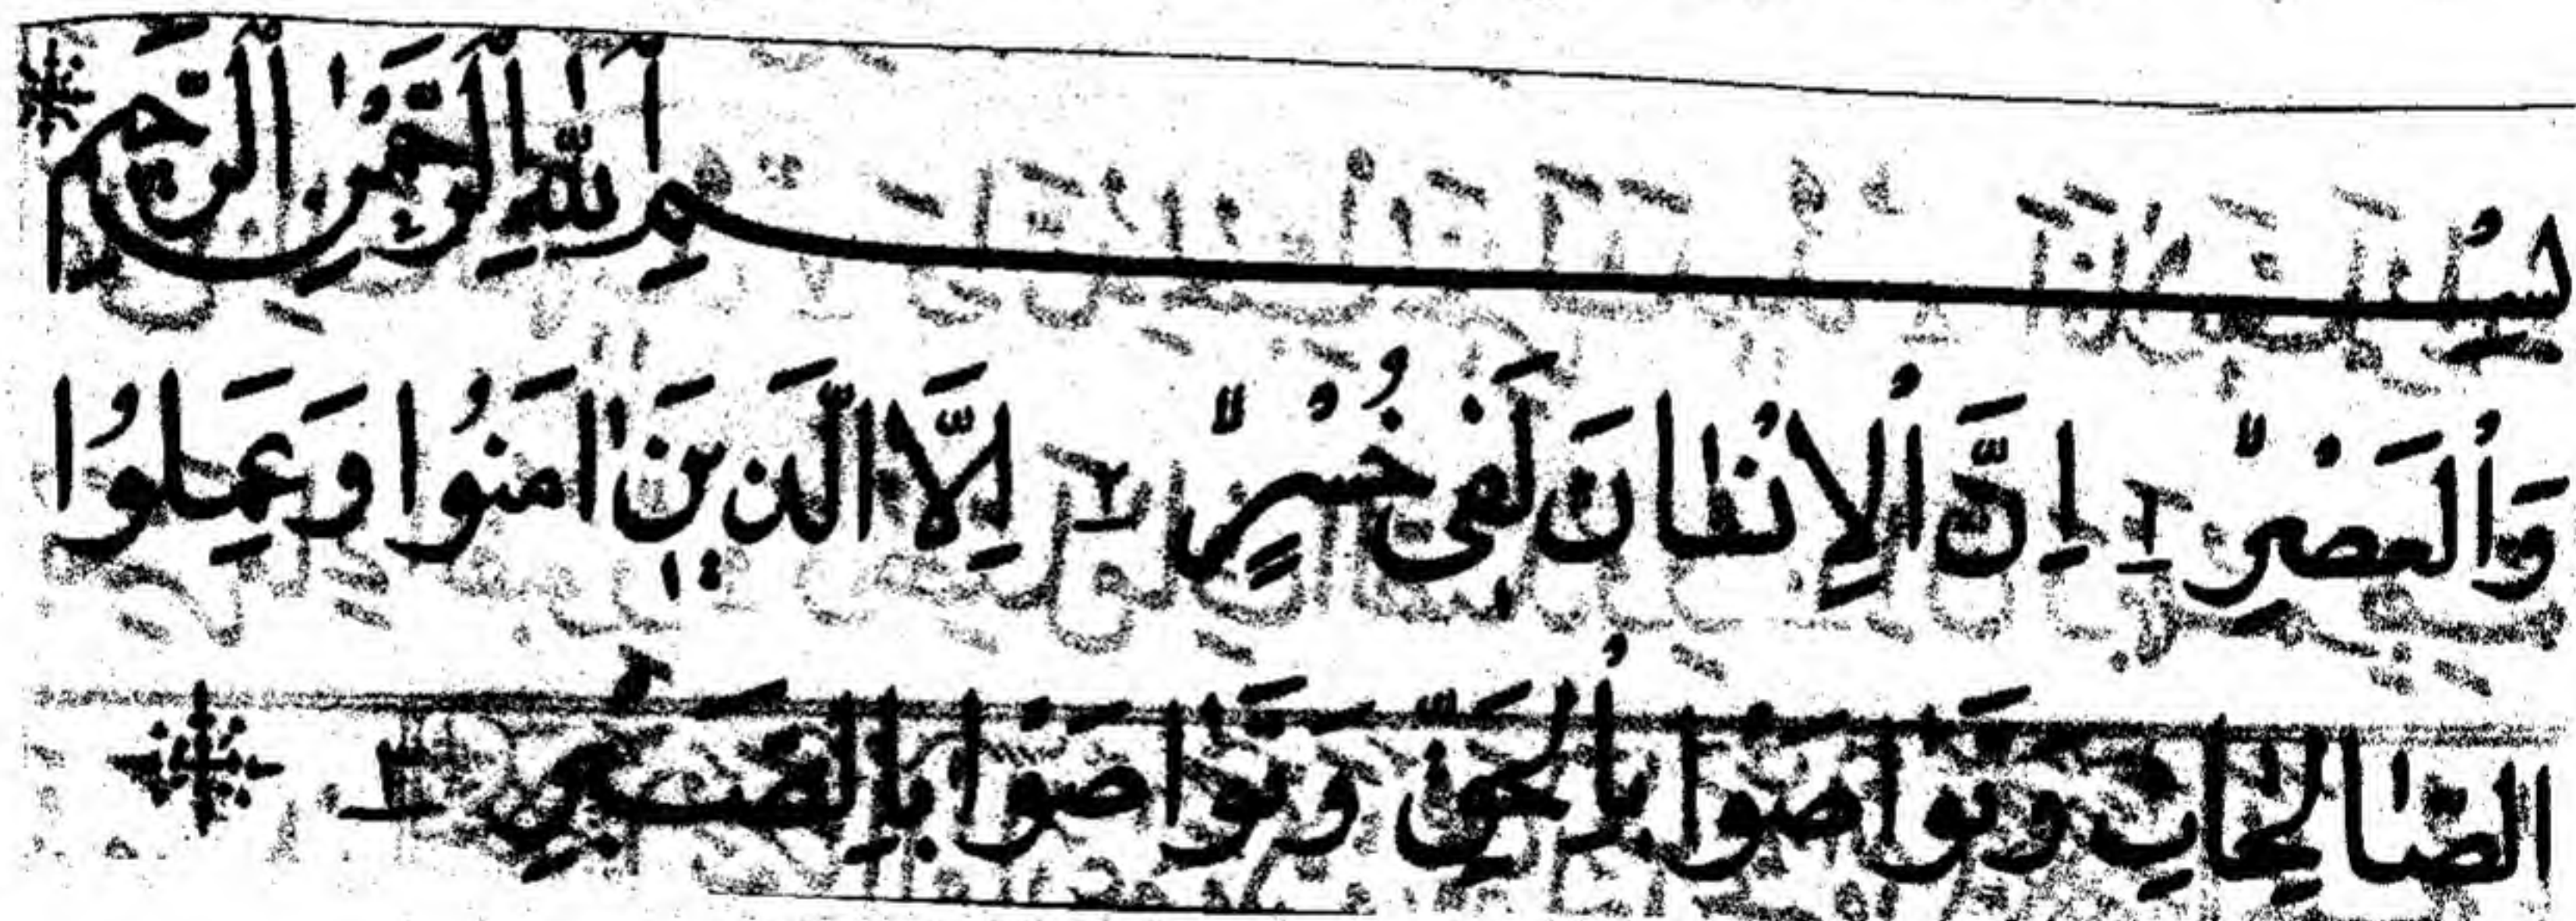 بِسْمِ ٱللّٰهِ ٱلرَّحْمٰنِ ٱلرَّحِيمِ
وَٱلْعَصْرِ ۱ إِنَّ ٱلْإِنْسَانَ لَفِى خُسْرٍ ۲ إِلَّا الَّذِينَ اٰمَنُوا وَعَمِلُوا
الصَّالِحَاتِ وَتَوَاصَوْا بِٱلْحَقِّ وَتَوَاصَوْا بِالصَّبْرِ ۳